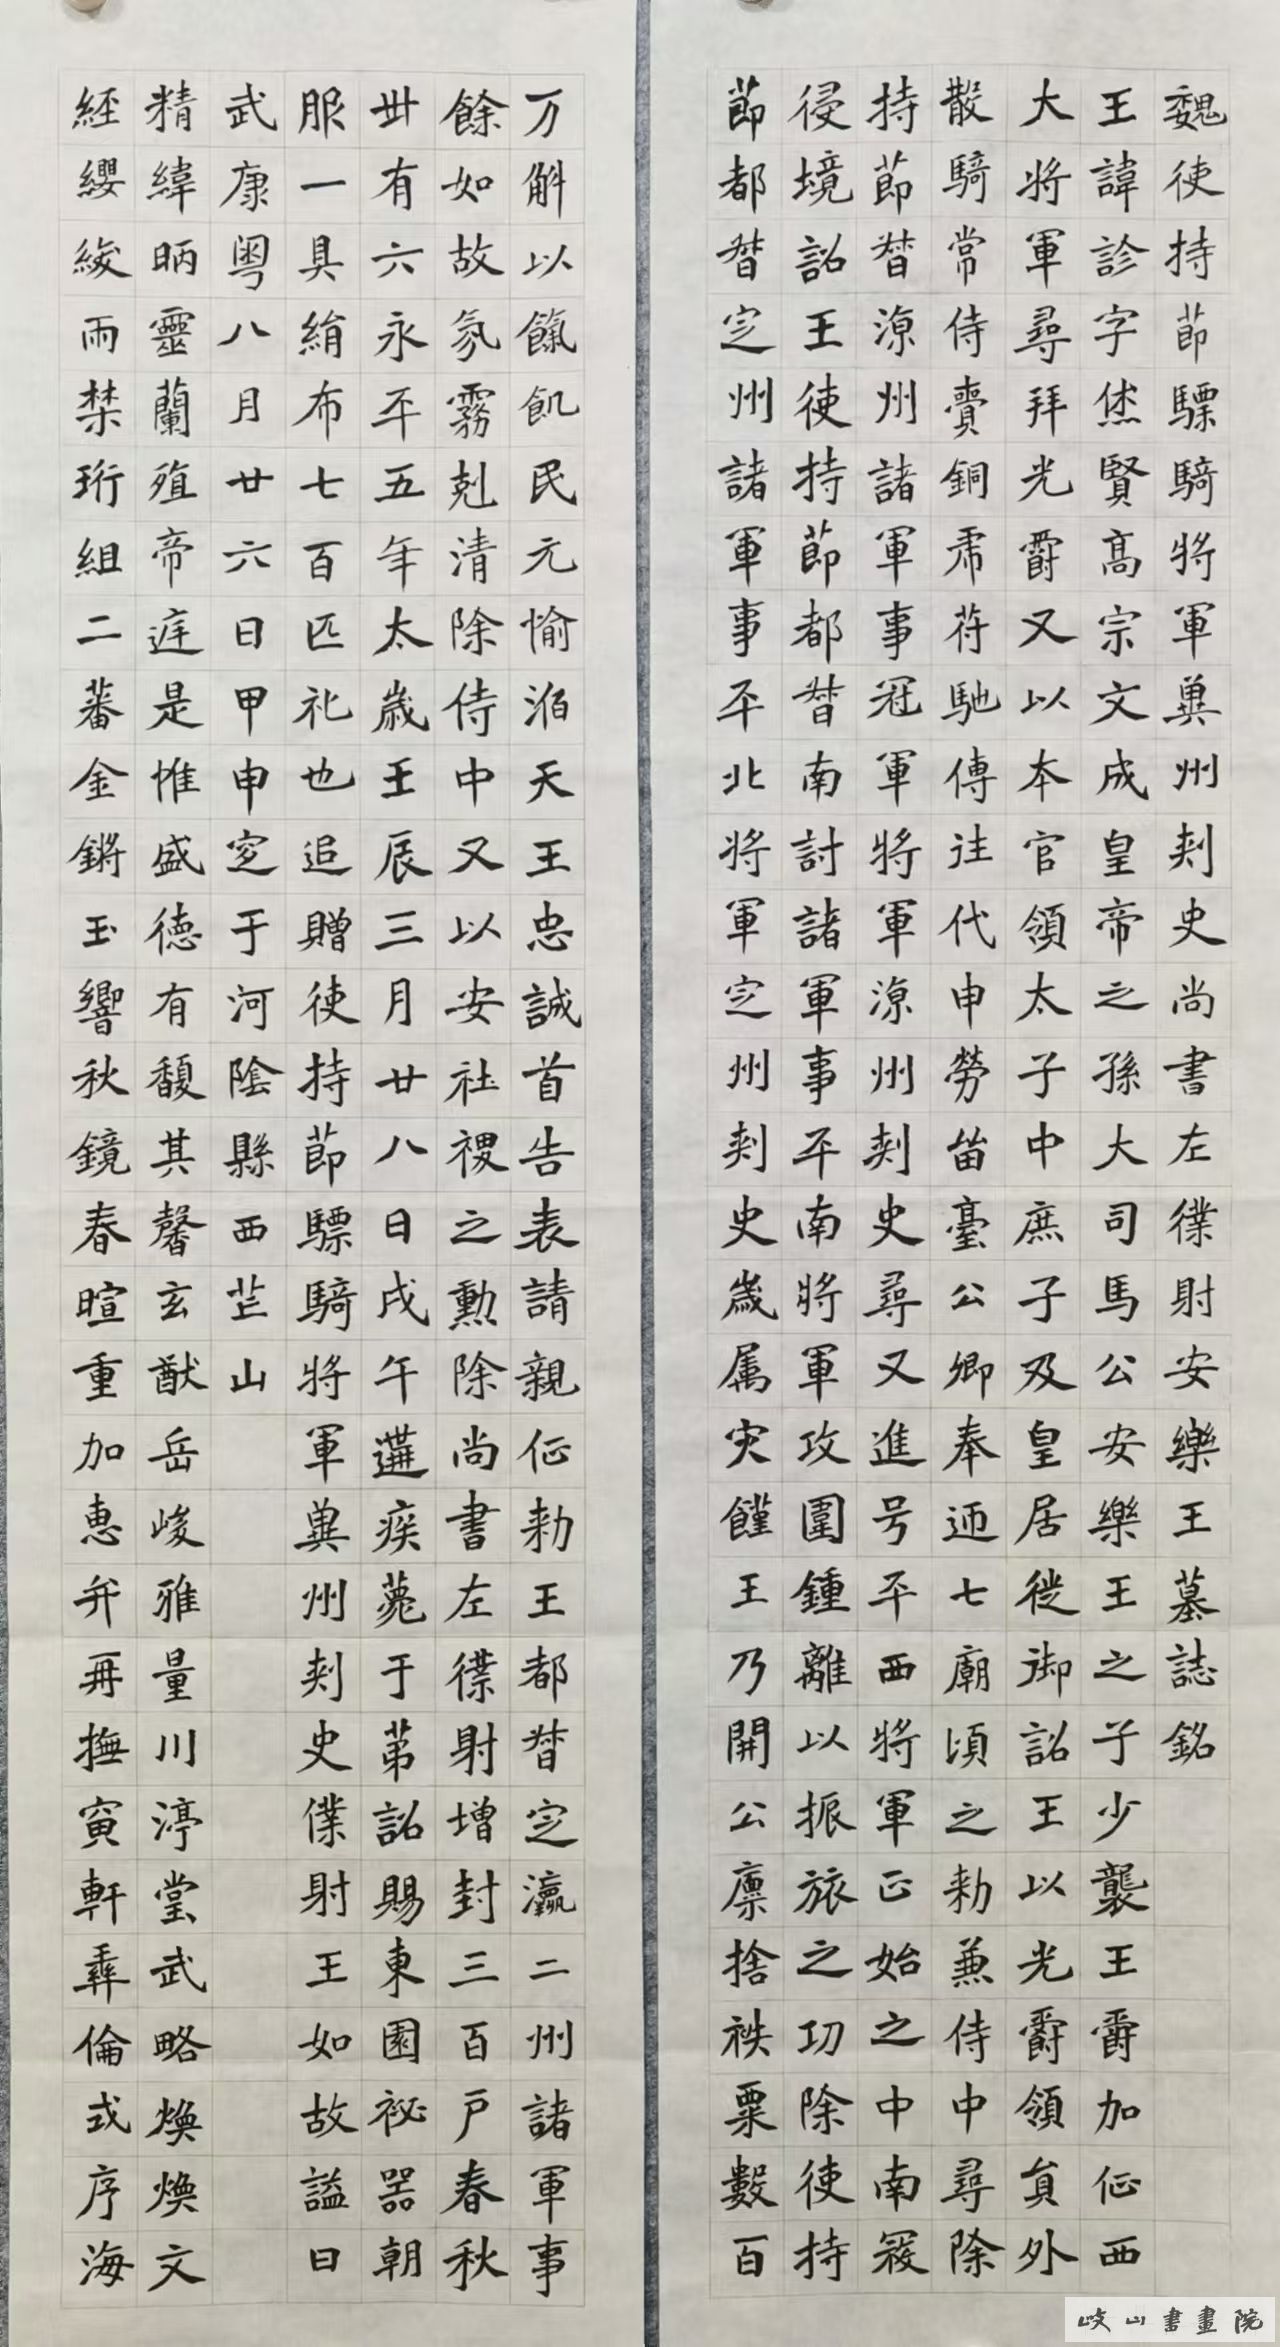 魏使持節驃騎將軍冀州刺史尚書左僕射安樂王墓誌銘
王諱詮字休賢高宗文成皇帝之孫大司馬公安樂王之子少襲王爵加征西
大將軍尋拜光爵又以本官領太子中庶子及皇居徙御詔王以光爵領員外
散騎常侍賚銅虎苻馳傳往代申勞留臺公卿奉迊七廟頃之勑兼侍中尋除
持節督涼州諸軍事冠軍將軍涼州刺史尋又進号平西將軍正始之中南寇
侵境詔王使持節都督南討諸軍事平南將軍攻圍鍾離以振旅之功除使持
節都督定州諸軍事平北將軍定州刺史歲属灾饉王乃開公廩捨秩粟數百
万斛以餼飢民元愉滔天王忠誠首告表請親征勑王都督定瀛二州諸軍事
餘如故氛霧剋清除侍中又以安社稷之勳除尚書左僕射增封三百戶春秋
卅有六永平五年太歲壬辰三月廿八日戊午遘疾薨于第詔賜東園祕器朝
服一具絹布七百匹礼也追贈使持節驃騎將軍冀州刺史僕射王如故謚曰
武康粵八月廿六日甲申窆于河陰縣西芒山
精緯昞靈蘭殖帝庭是惟盛德有馥其馨玄猷岳峻雅量川渟堂武略煥煥文
經纓緌雨禁珩組二蕃金鏘玉響秋鏡春暄重加惠弁再撫寅軒彝倫式序海
岐山書畫院